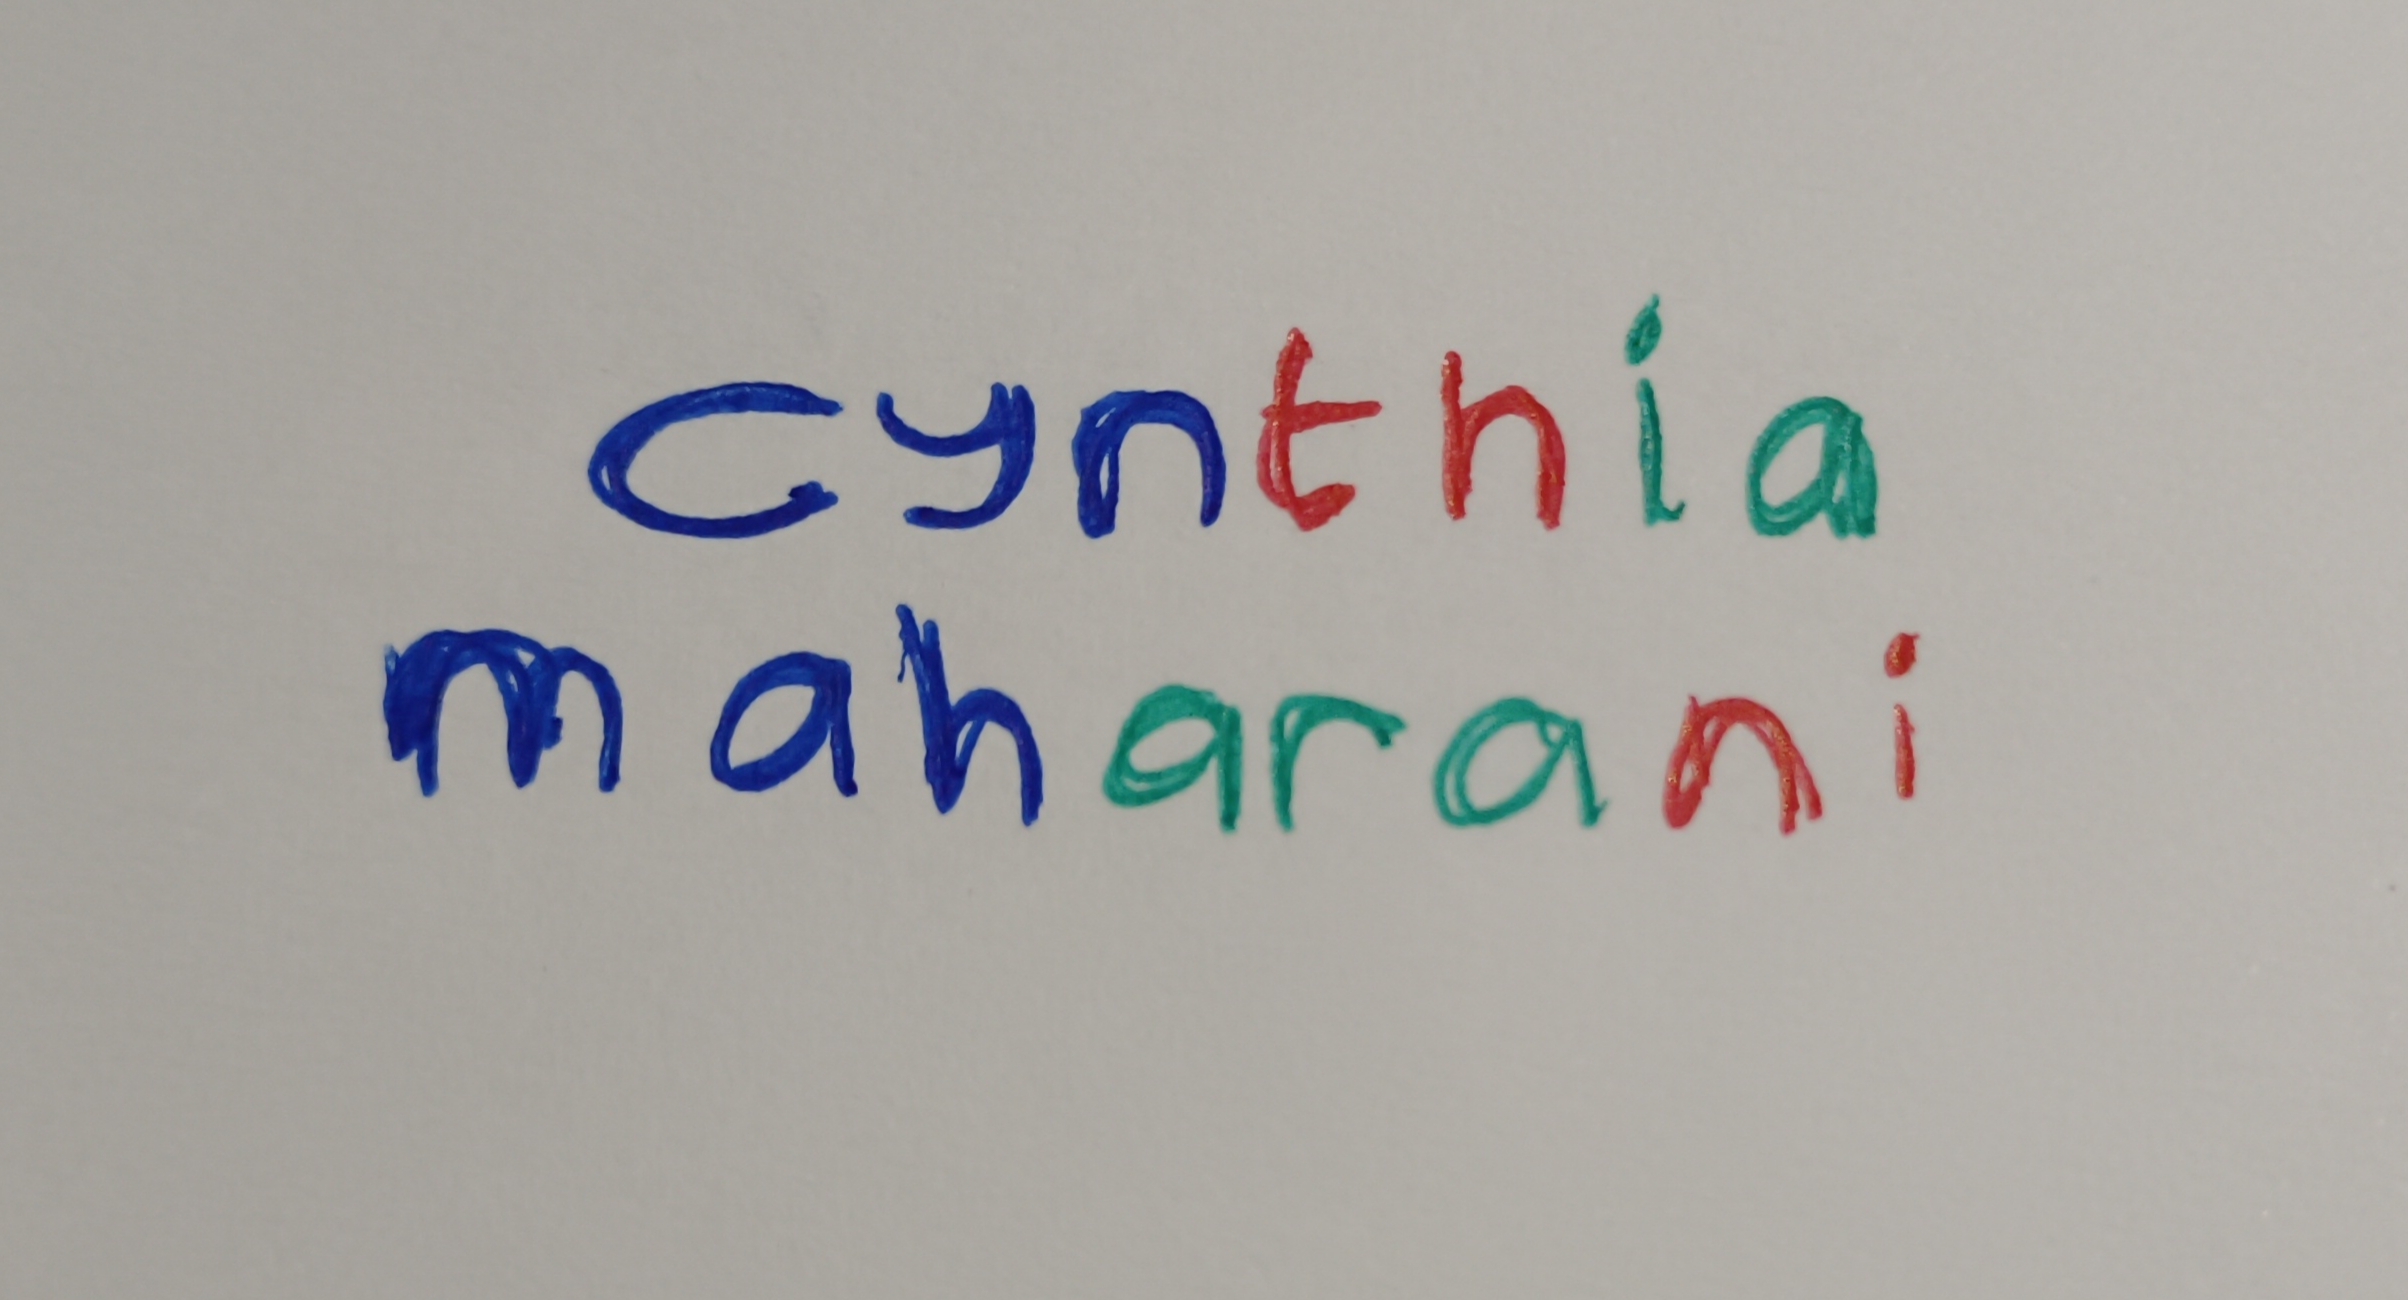 cynthia
maharani